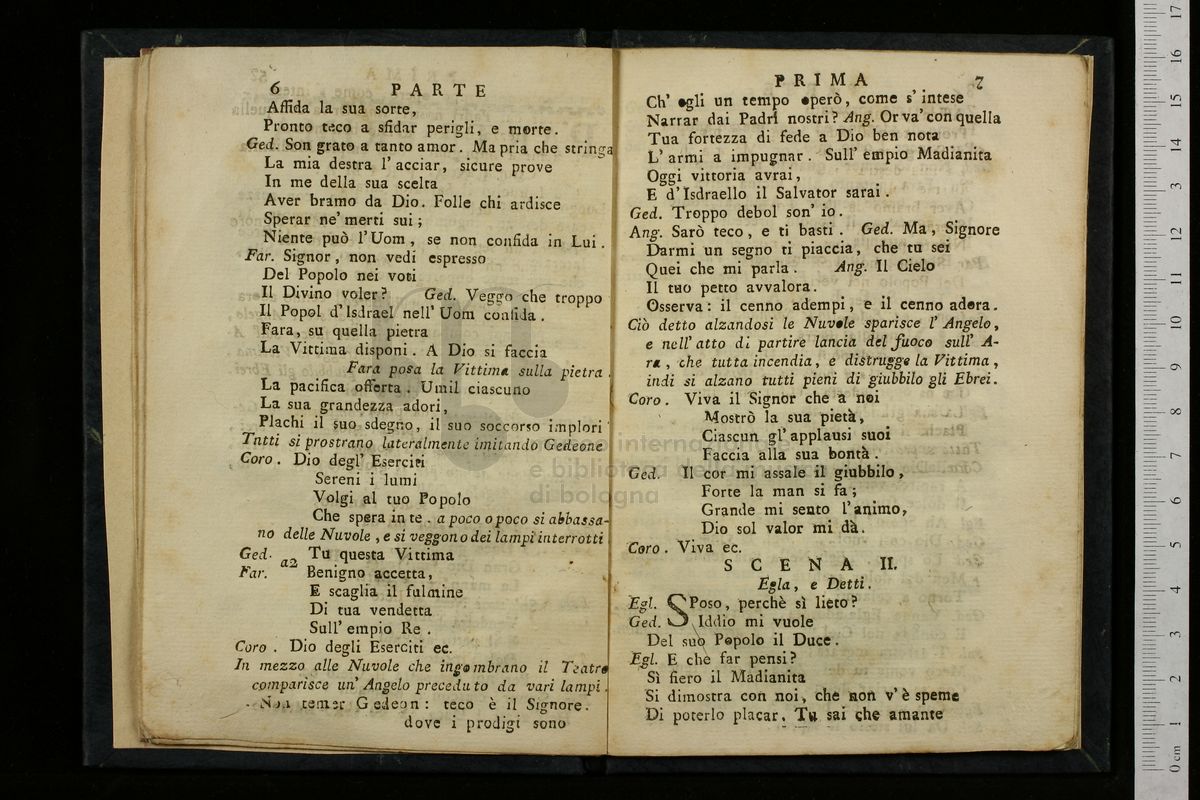 6 PARTE
Affida la sua sorte,
Pronto teco a sfidar perigli, e morte.
Ged. Son grato a tanto amor. Ma pria che stringa
La mia destra l' acciar, sicure prove
In me della sua scelta
Aver bramo da Dio. Folle chi ardisce
Sperar ne' merti sui;
Niente può l'Uom, se non confida in Lui.
Far. Signor, non vedi espresso
Del Popolo nei voti
Il Divino voler? Ged. Veggo che troppo
Il Popol d'Isdrael nell' Uom confida.
Fara, su quella pietra
La Vittima disponi. A Dio si faccia
Fara posa la Vittima sulla pietra.
La pacifica offerta. Umil ciascuno
La sua grandezza adori,
Plachi il suo sdegno, il suo soccorso implori
Tntti si prostrano lateralmente imitando Gedeone
Coro. Dio degl' Eserciti
Sereni i lumi
Volgi al tuo Popolo
Che spera in te. a poco o poco si abbassa-
no delle Nuvole, e si veggono dei lampi interrotti
Ged. a2 Tu questa Vittima
Far. Benigno accetta,
E scaglia il fulmine
Di tua vendetta
Sull' empio Re.
Coro. Dio degli Eserciti ec.
In mezzo alle Nuvole che ingombrano il Teatro
comparisce un' Angelo preceduto da vari lampi.
Non temer Gedeon: teco è il Signore.
dove i prodigi sono
PRIMA 7
Ch' egli un tempo operò, come s' intese
Narrar dai Padri nostri? Ang. Or va' con quella
Tua fortezza di fede a Dio ben nota
L' armi a impugnar. Sull' empio Madianita
Oggi vittoria avrai,
E d'Isdraello il Salvator sarai.
Ged. Troppo debol son' io.
Ang. Sarò teco, e ti basti. Ged. Ma, Signore
Darmi un segno ti piaccia, che tu sei
Quei che mi parla. Ang. Il Cielo
Il tuo petto avvalora.
Osserva: il cenno adempi, e il cenno adora.
Ciò detto alzandosi le Nuvole sparisce l' Angelo,
e nell' atto di partire lancia del fuoco sull' A-
ra, che tutta incendia, e distrugge la Vittima,
indi si alzano tutti pieni di giubbilo gli Ebrei.
Coro. Viva il Signor che a noi
Mostrò la sua pietà,
Ciascun gl' applausi suoi
Faccia alla sua bontà.
Ged. Il cor mi assale il giubbilo,
Forte la man si fa;
Grande mi sento l'animo,
Dio sol valor mi dà.
Coro. Viva ec.
SCENA II.
Egla, e Detti.
Egl. SPoso, perchè sì lieto?
Ged. Iddio mi vuole
Del suo Popolo il Duce.
Egl. E che far pensi?
Sì fiero il Madianita
Si dimostra con noi, che non v'è speme
Di poterlo placar. Tu sai che amante
museo internazionale
e biblioteca della musica
di bologna
0 cm 1 2 3 4 5 6 7 8 9 10 11 12 13 14 15 16 17